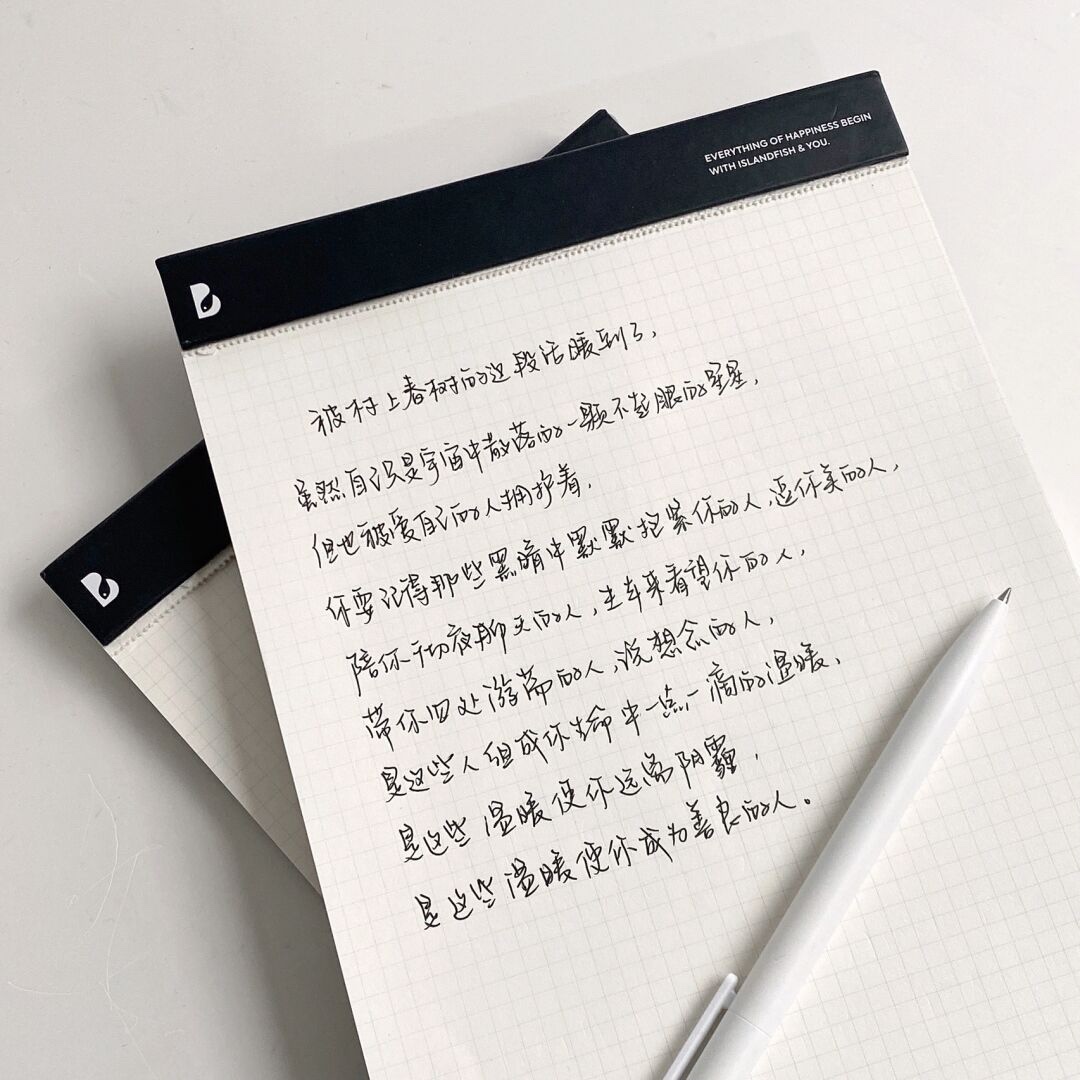 EVERYTHING OF HAPPINESS BEGIN
WITH ISLANDFISH & YOU.
被村上春树的这段话暖到了，
虽然自己只是宇宙中散落的一颗不起眼的星星，
但也被爱自己的人拥护着，
你要记得那些黑暗中默默抱紧你的人，逗你笑的人，
陪你彻夜聊天的人，坐车来看望你的人，
带你四处游荡的人，说想念的人，
是这些人组成你生命中一点一滴的温暖，
是这些温暖使你远离阴霾，
是这些温暖使你成为善良的人。